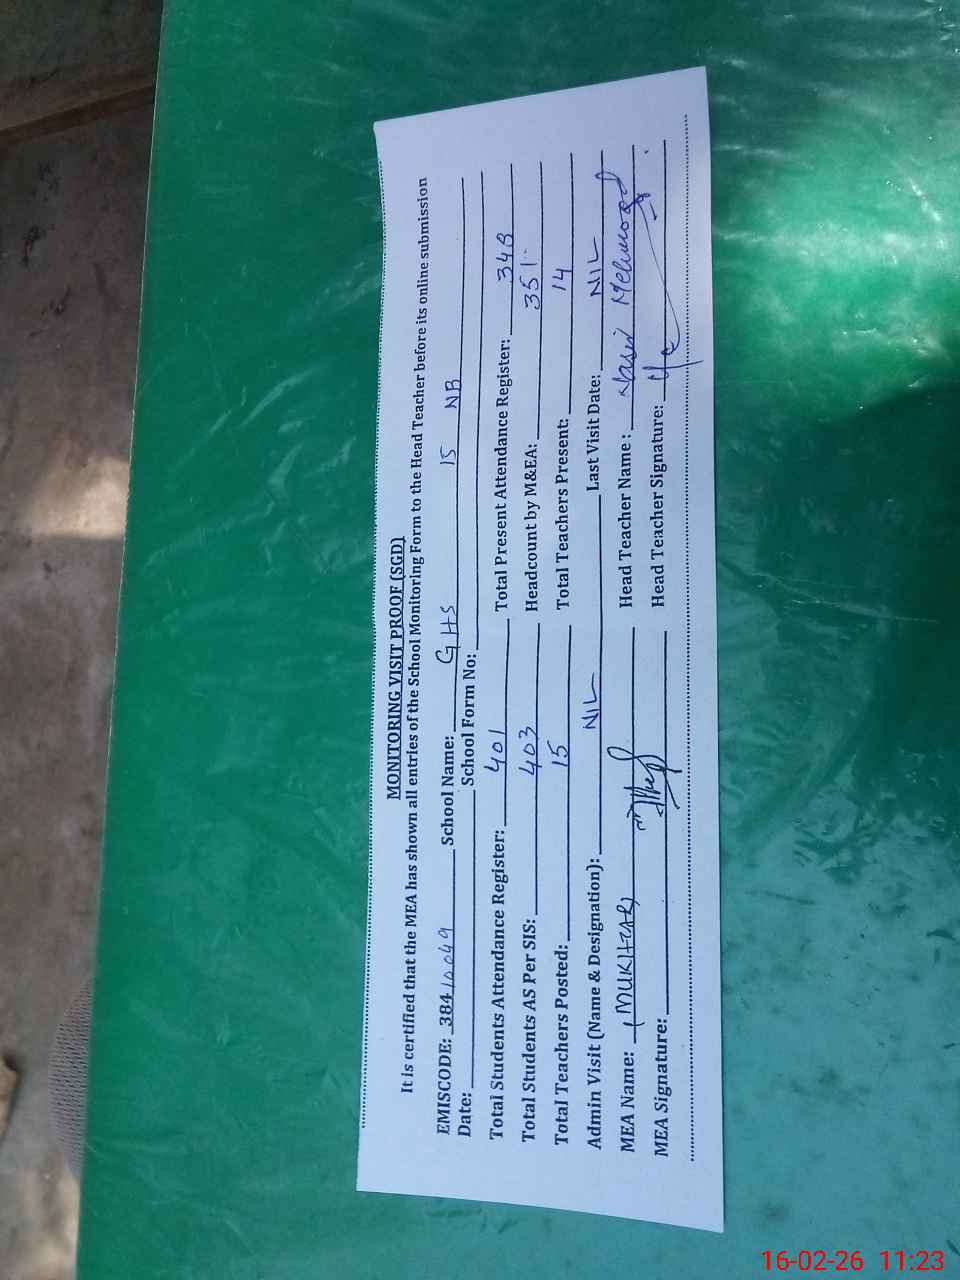 MONITORING VISIT PROOF (SGD)
It is certified that the MEA has shown all entries of the School Monitoring Form to the Head Teacher before its online submission
EMISCODE: 38410049 School Name: GHS 15 NB
Date: School Form No:
Total Students Attendance Register: 401 Total Present Attendance Register: 348
Total Students AS Per SIS: 403 Headcount by M&EA: 351
Total Teachers Posted: 15 Total Teachers Present: 14
Admin Visit (Name & Designation): NIL Last Visit Date: NIL
MEA Name: MUKHTAR Head Teacher Name: Nasir Mehmood
MEA Signature: Head Teacher Signature:
16-02-26 11:23